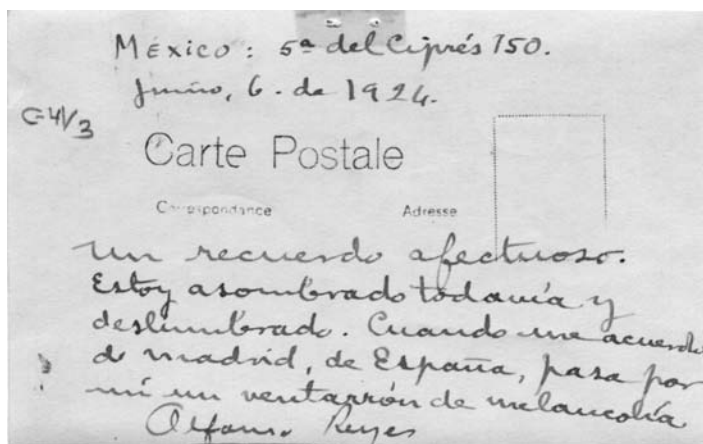 México: 5ª del Ciprés 150.
Junio, 6. de 1924.
C=41/3
Carte Postale
Correspondance Adresse
un recuerdo afectuoso.
Estoy asombrado todavía y
deslumbrado. Cuando me acuerdo
de madrid, de España, pasa por
mí un ventarrón de melancolía
Alfonso Reyes